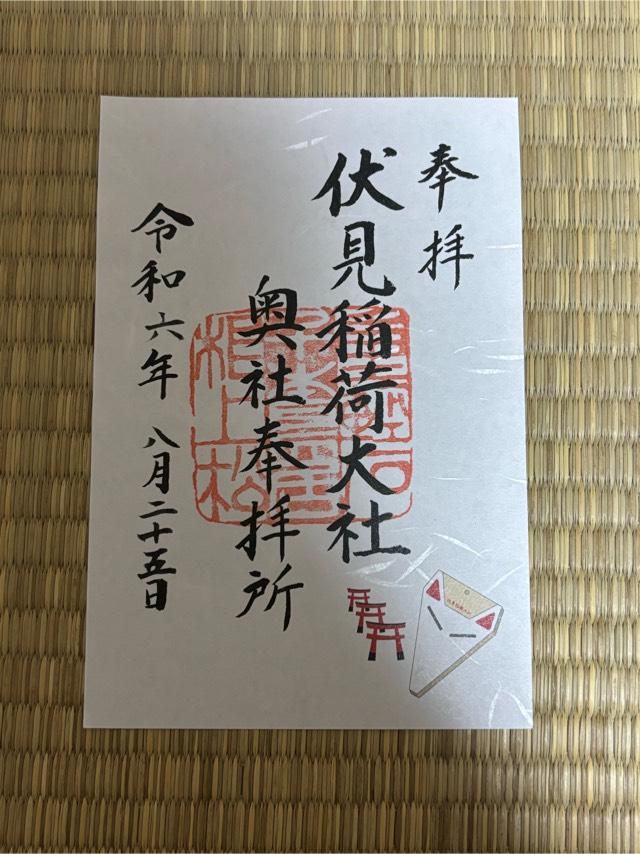 奉拝
伏見稲荷大社
奥社奉拝所
令和六年 八月二十五日